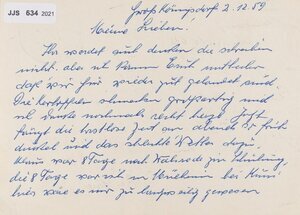 JJS 534 2021
Großkönigsdorf 2.12.89
Meine Lieben!
Ihr werdet auch denken die schreiben
nicht. Aber ich kann Euch mitteilen
daß wir hier wieder gut gelandet sind.
Die schmecken großartig und
ich danke nochmals recht herzl. Jetzt
fängt die trostlose Zeit an abends so früh
dunkel und das schlechte Wetter dazu.
war 8 Tage nach Schulung,
die 8 Tage war ich in München bei
hier wäre es mir zu langweilig gewesen